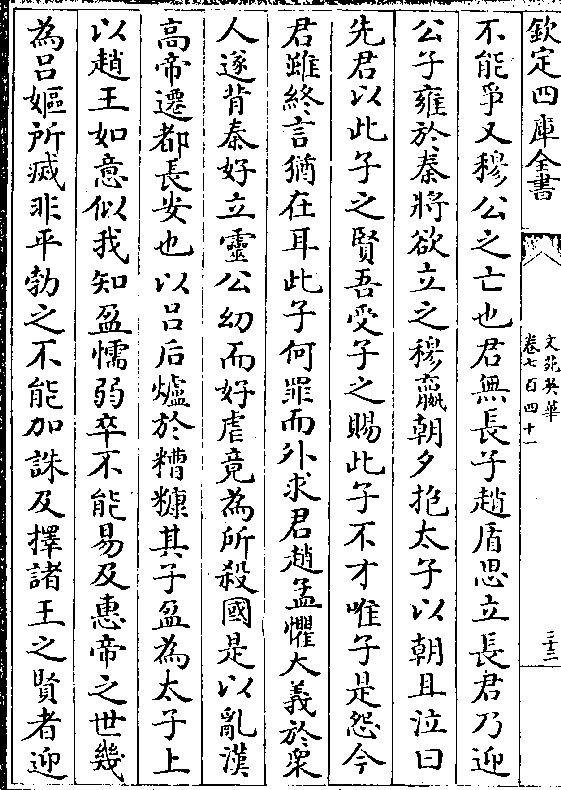 欽定四庫全書
文苑英華
卷七百四十一
三十二
不能爭又穆公之亡也君無長子趙盾思立長君乃迎
公子雍於秦將欲立之穆嬴朝夕抱太子以朝且泣曰
先君以此子之賢吾受子之賜此子不才唯子是怨今
君雖終言猶在耳此子何罪而外求君趙孟懼大義於衆
人遂背秦好立靈公幼而好虐竟為所殺國是以亂漢
高帝遷都長安也以吕后爐於糟糠其子盈為太子上
以趙王如意似我知盈懦弱卒不能易及惠帝之世幾
為吕嫗所滅非平勃之不能加誅及擇諸王之賢者迎